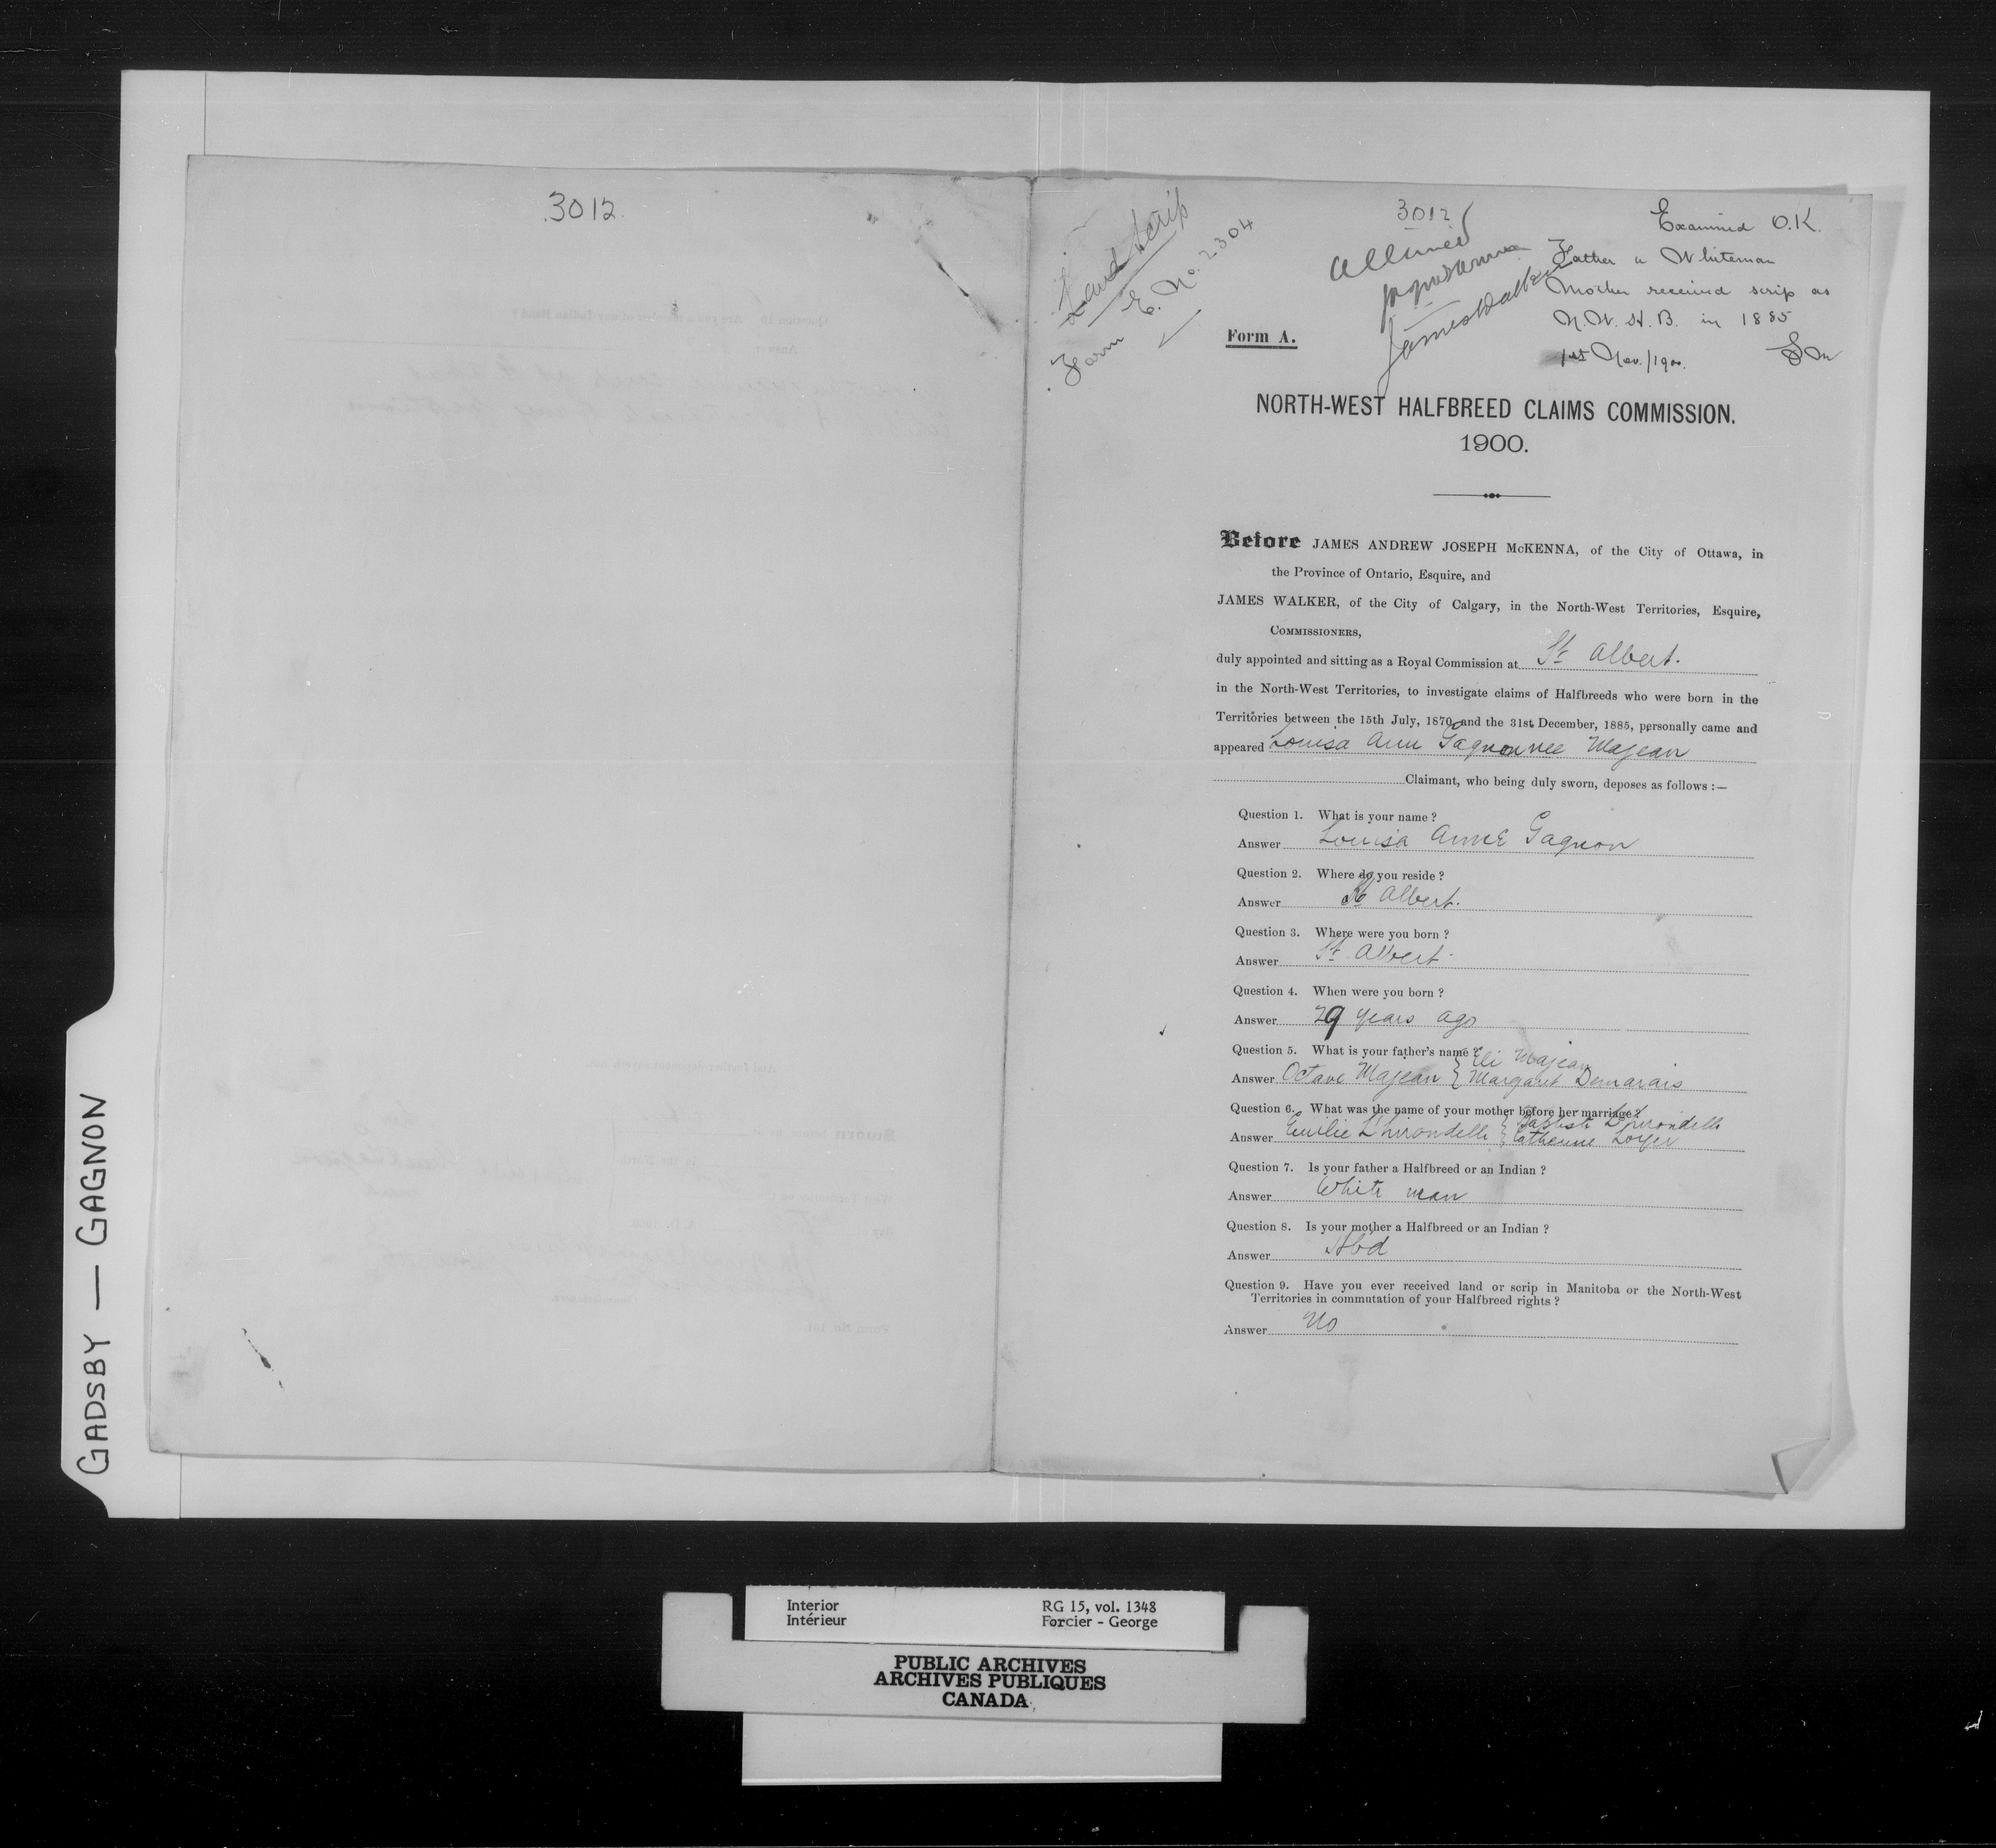 3012
Land Scrip
Form E. No. 2304
3012
Allowed
JAJMcKenna
James Walker
Examined O.K.
Father a Whiteman
Mother received scrip as
N.W.H.B. in 1885
1st Nov./1900.
Form A.
NORTH-WEST HALFBREED CLAIMS COMMISSION.
1900.
Before JAMES ANDREW JOSEPH McKENNA, of the City of Ottawa, in
the Province of Ontario, Esquire, and
JAMES WALKER, of the City of Calgary, in the North-West Territories, Esquire,
COMMISSIONERS,
duly appointed and sitting as a Royal Commission at St Albert.
in the North-West Territories, to investigate claims of Halfbreeds who were born in the
Territories between the 15th July, 1870, and the 31st December, 1885, personally came and
appeared Louisa Ann Gagnon nee Majean
Claimant, who being duly sworn, deposes as follows :—
Question 1. What is your name ?
Answer Louisa Anne Gagnon
Question 2. Where do you reside ?
Answer St Albert.
Question 3. Where were you born ?
Answer St Albert.
Question 4. When were you born ?
Answer 29 years ago
Question 5. What is your father's name ? { Eli Majean
Answer Octave Majean { Margaret Demarais
Question 6. What was the name of your mother before her marriage ? { Baptiste L'hirondelle
Answer Emilie L'hirondelle { Catherine Loyer
Question 7. Is your father a Halfbreed or an Indian ?
Answer White man
Question 8. Is your mother a Halfbreed or an Indian ?
Answer Hbd
Question 9. Have you ever received land or scrip in Manitoba or the North-West
Territories in commutation of your Halfbreed rights ?
Answer No
GADSBY — GAGNON
Interior RG 15, vol. 1348
Intérieur Forcier - George
PUBLIC ARCHIVES
ARCHIVES PUBLIQUES
CANADA